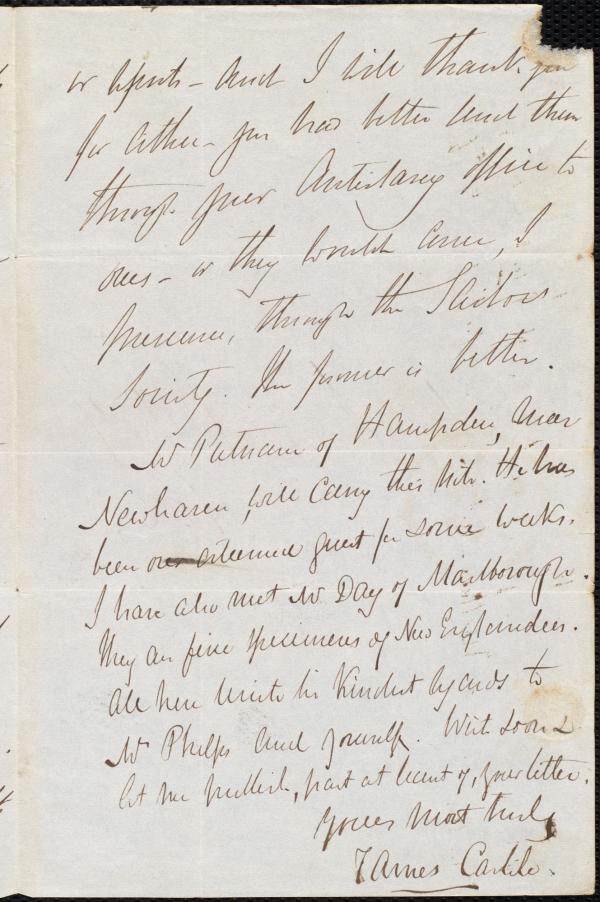 or Reports – and I will thank you
for either – you had better send them
through your Antislavery office to
ours – or they would come, I
presume, through the Sailors
Society. The former is better.
Mr Putnam of Hampden, near
Newhaven, will carry this note. He has
been our esteemed guest for some weeks.
I have also met Mr Day of Marlborough.
They are fine specimens of New Englanders.
All here unite in kindest regards to
Mr Phelps and yourself. Write soon &
let me publish, part at least of, your letter.
Yours most truly
James Carlile.